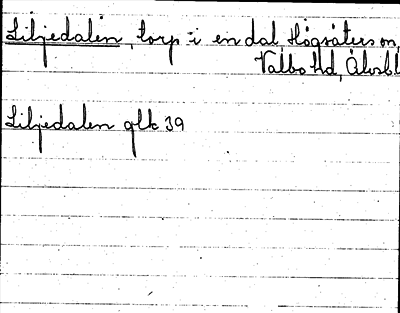 Liljedalen, torp i en dal, Högsäters sn,
Valbo hd, Älvsbl
Liljedalen glk 39